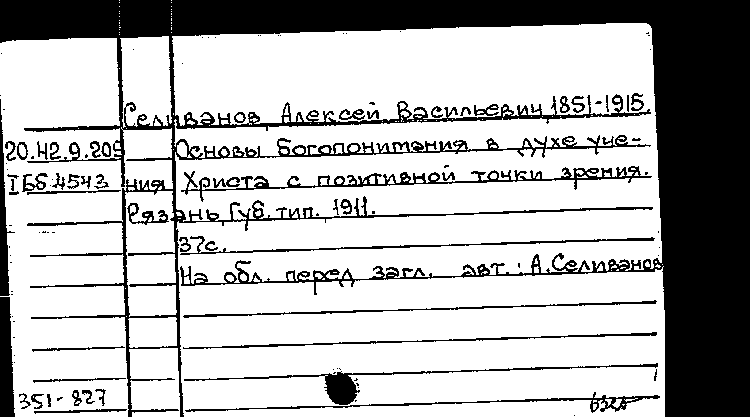 Селиванов, Алексей Васильевич, 1851-1915.
20.42.9.209 Основы богопонитания в духе уче-
I 65 4543 ния Христа с позитивной точки зрения.
Рязань, Губ. тип., 1911.
37с.
На обл. перед загл. авт.: А.Селиванов
351-827